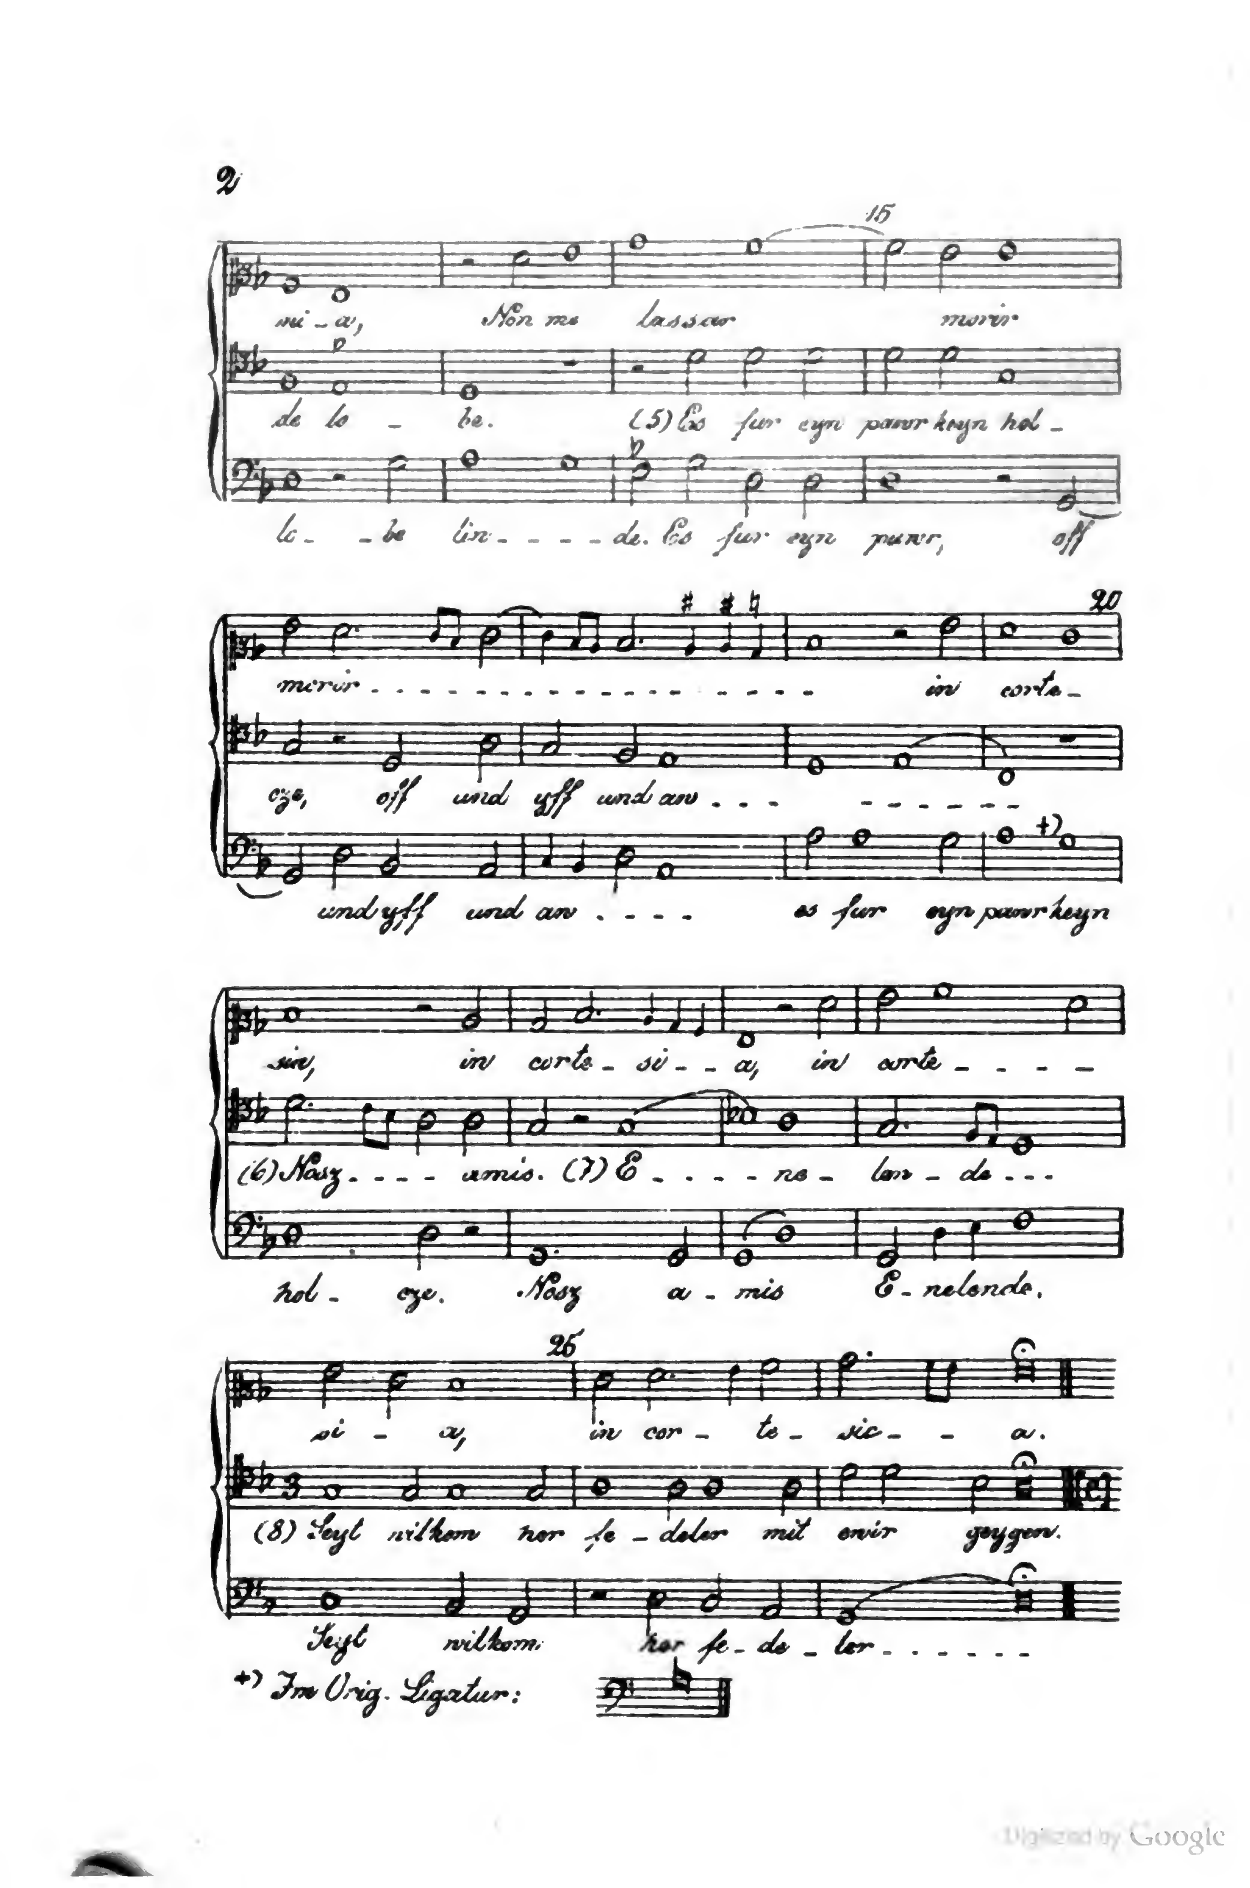 2
15
mi - a, Non me lassar morir
de lo - be. (5) Es fur eyn pawr keyn hol -
lo - - be lin - - - - de. Es fur eyn pawr, off
20
morir - - - - - - - - - - - - - - - in corte -
cze, off und yff und an - - - - - - - - -
und yff und an - - - - es fur eyn pawr keyn
+)
sin, in corte - si - - a, in corte - - - - -
(6) Nosz - - - - amis. (7) E - - - - ne - len - de - - -
hol - cze. Nosz a - mis E - nelende.
25
si - a, in cor - te - sie - - a.
3
(8) Seyt wilkom her fe - deler mit ewir geygen.
Seyt wilkom her fe - de - ler - - - - - -
+) Im Orig. Ligatur:
Digitized by Google